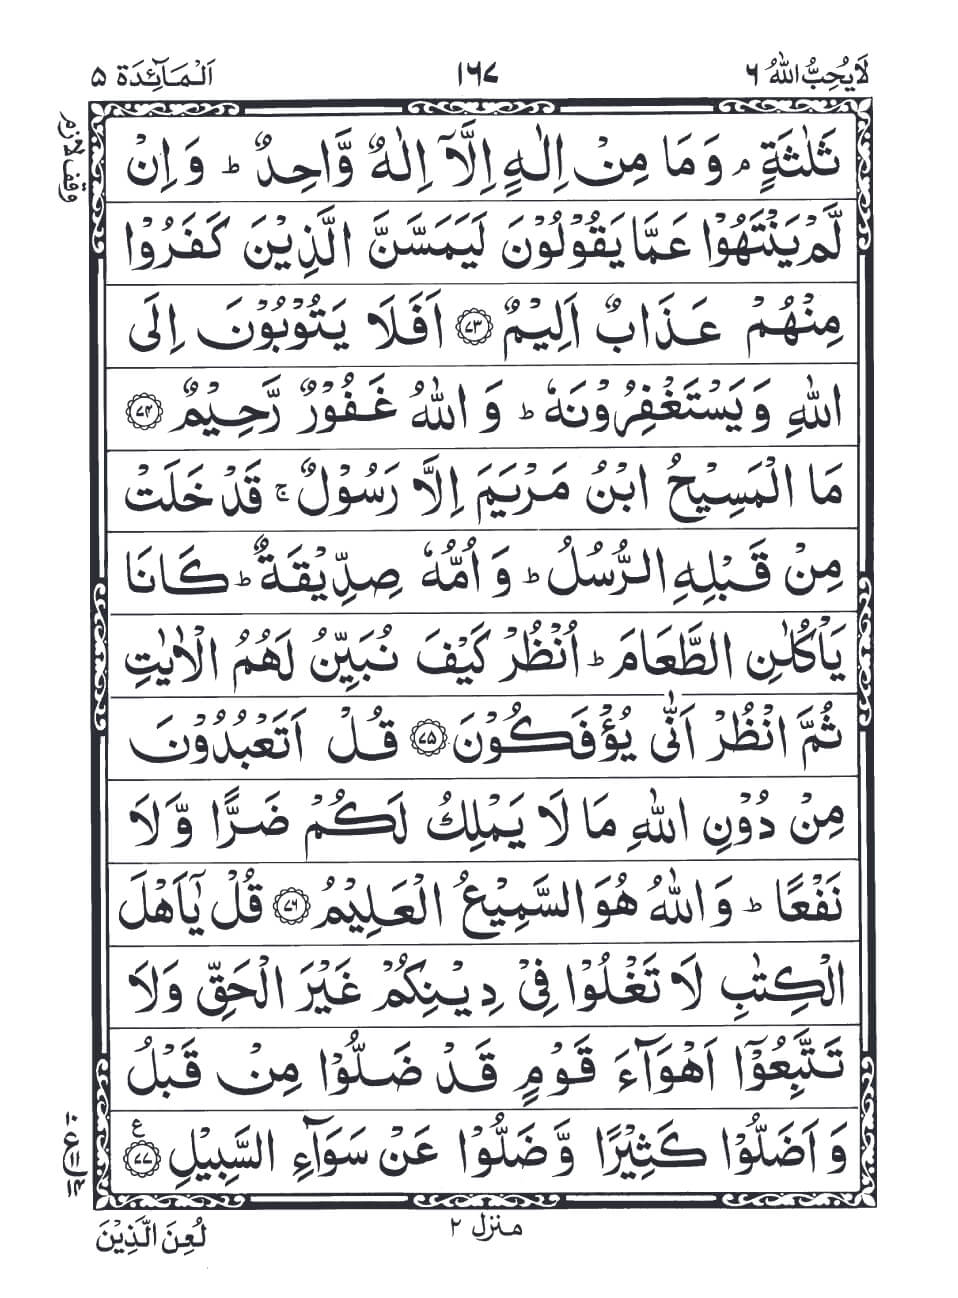 لَا يُحِبُّ اللّٰهُ ٦
١٦٧
اَلْمَآئِدَة ٥
ثَلٰثَةٍ ۘ وَمَا مِنْ اِلٰهٍ اِلَّاۤ اِلٰهٌ وَّاحِدٌ ؕ وَاِنْ
وقف لازم
لَّمْ يَنْتَهُوْا عَمَّا يَقُوْلُوْنَ لَيَمَسَّنَّ الَّذِيْنَ كَفَرُوْا
مِنْهُمْ عَذَابٌ اَلِيْمٌ ﴿٧٣﴾ اَفَلَا يَتُوْبُوْنَ اِلَى
اللّٰهِ وَيَسْتَغْفِرُوْنَهٗ ؕ وَاللّٰهُ غَفُوْرٌ رَّحِيْمٌ ﴿٧٤﴾
مَا الْمَسِيْحُ ابْنُ مَرْيَمَ اِلَّا رَسُوْلٌ ۚ قَدْ خَلَتْ
مِنْ قَبْلِهِ الرُّسُلُ ؕ وَاُمُّهٗ صِدِّيْقَةٌ ؕ كَانَا
يَاْكُلٰنِ الطَّعَامَ ؕ اُنْظُرْ كَيْفَ نُبَيِّنُ لَهُمُ الْاٰيٰتِ
ثُمَّ انْظُرْ اَنّٰى يُؤْفَكُوْنَ ﴿٧٥﴾ قُلْ اَتَعْبُدُوْنَ
مِنْ دُوْنِ اللّٰهِ مَا لَا يَمْلِكُ لَكُمْ ضَرًّا وَّلَا
نَفْعًا ؕ وَاللّٰهُ هُوَ السَّمِيْعُ الْعَلِيْمُ ﴿٧٦﴾ قُلْ يٰۤاَهْلَ
الْكِتٰبِ لَا تَغْلُوْا فِيْ دِيْنِكُمْ غَيْرَ الْحَقِّ وَلَا
تَتَّبِعُوْۤا اَهْوَآءَ قَوْمٍ قَدْ ضَلُّوْا مِنْ قَبْلُ
وَاَضَلُّوْا كَثِيْرًا وَّضَلُّوْا عَنْ سَوَآءِ السَّبِيْلِ ﴿٧٧﴾ ع
١٠
ع ١١
١٤
منزل ٢
لُعِنَ الَّذِيْنَ